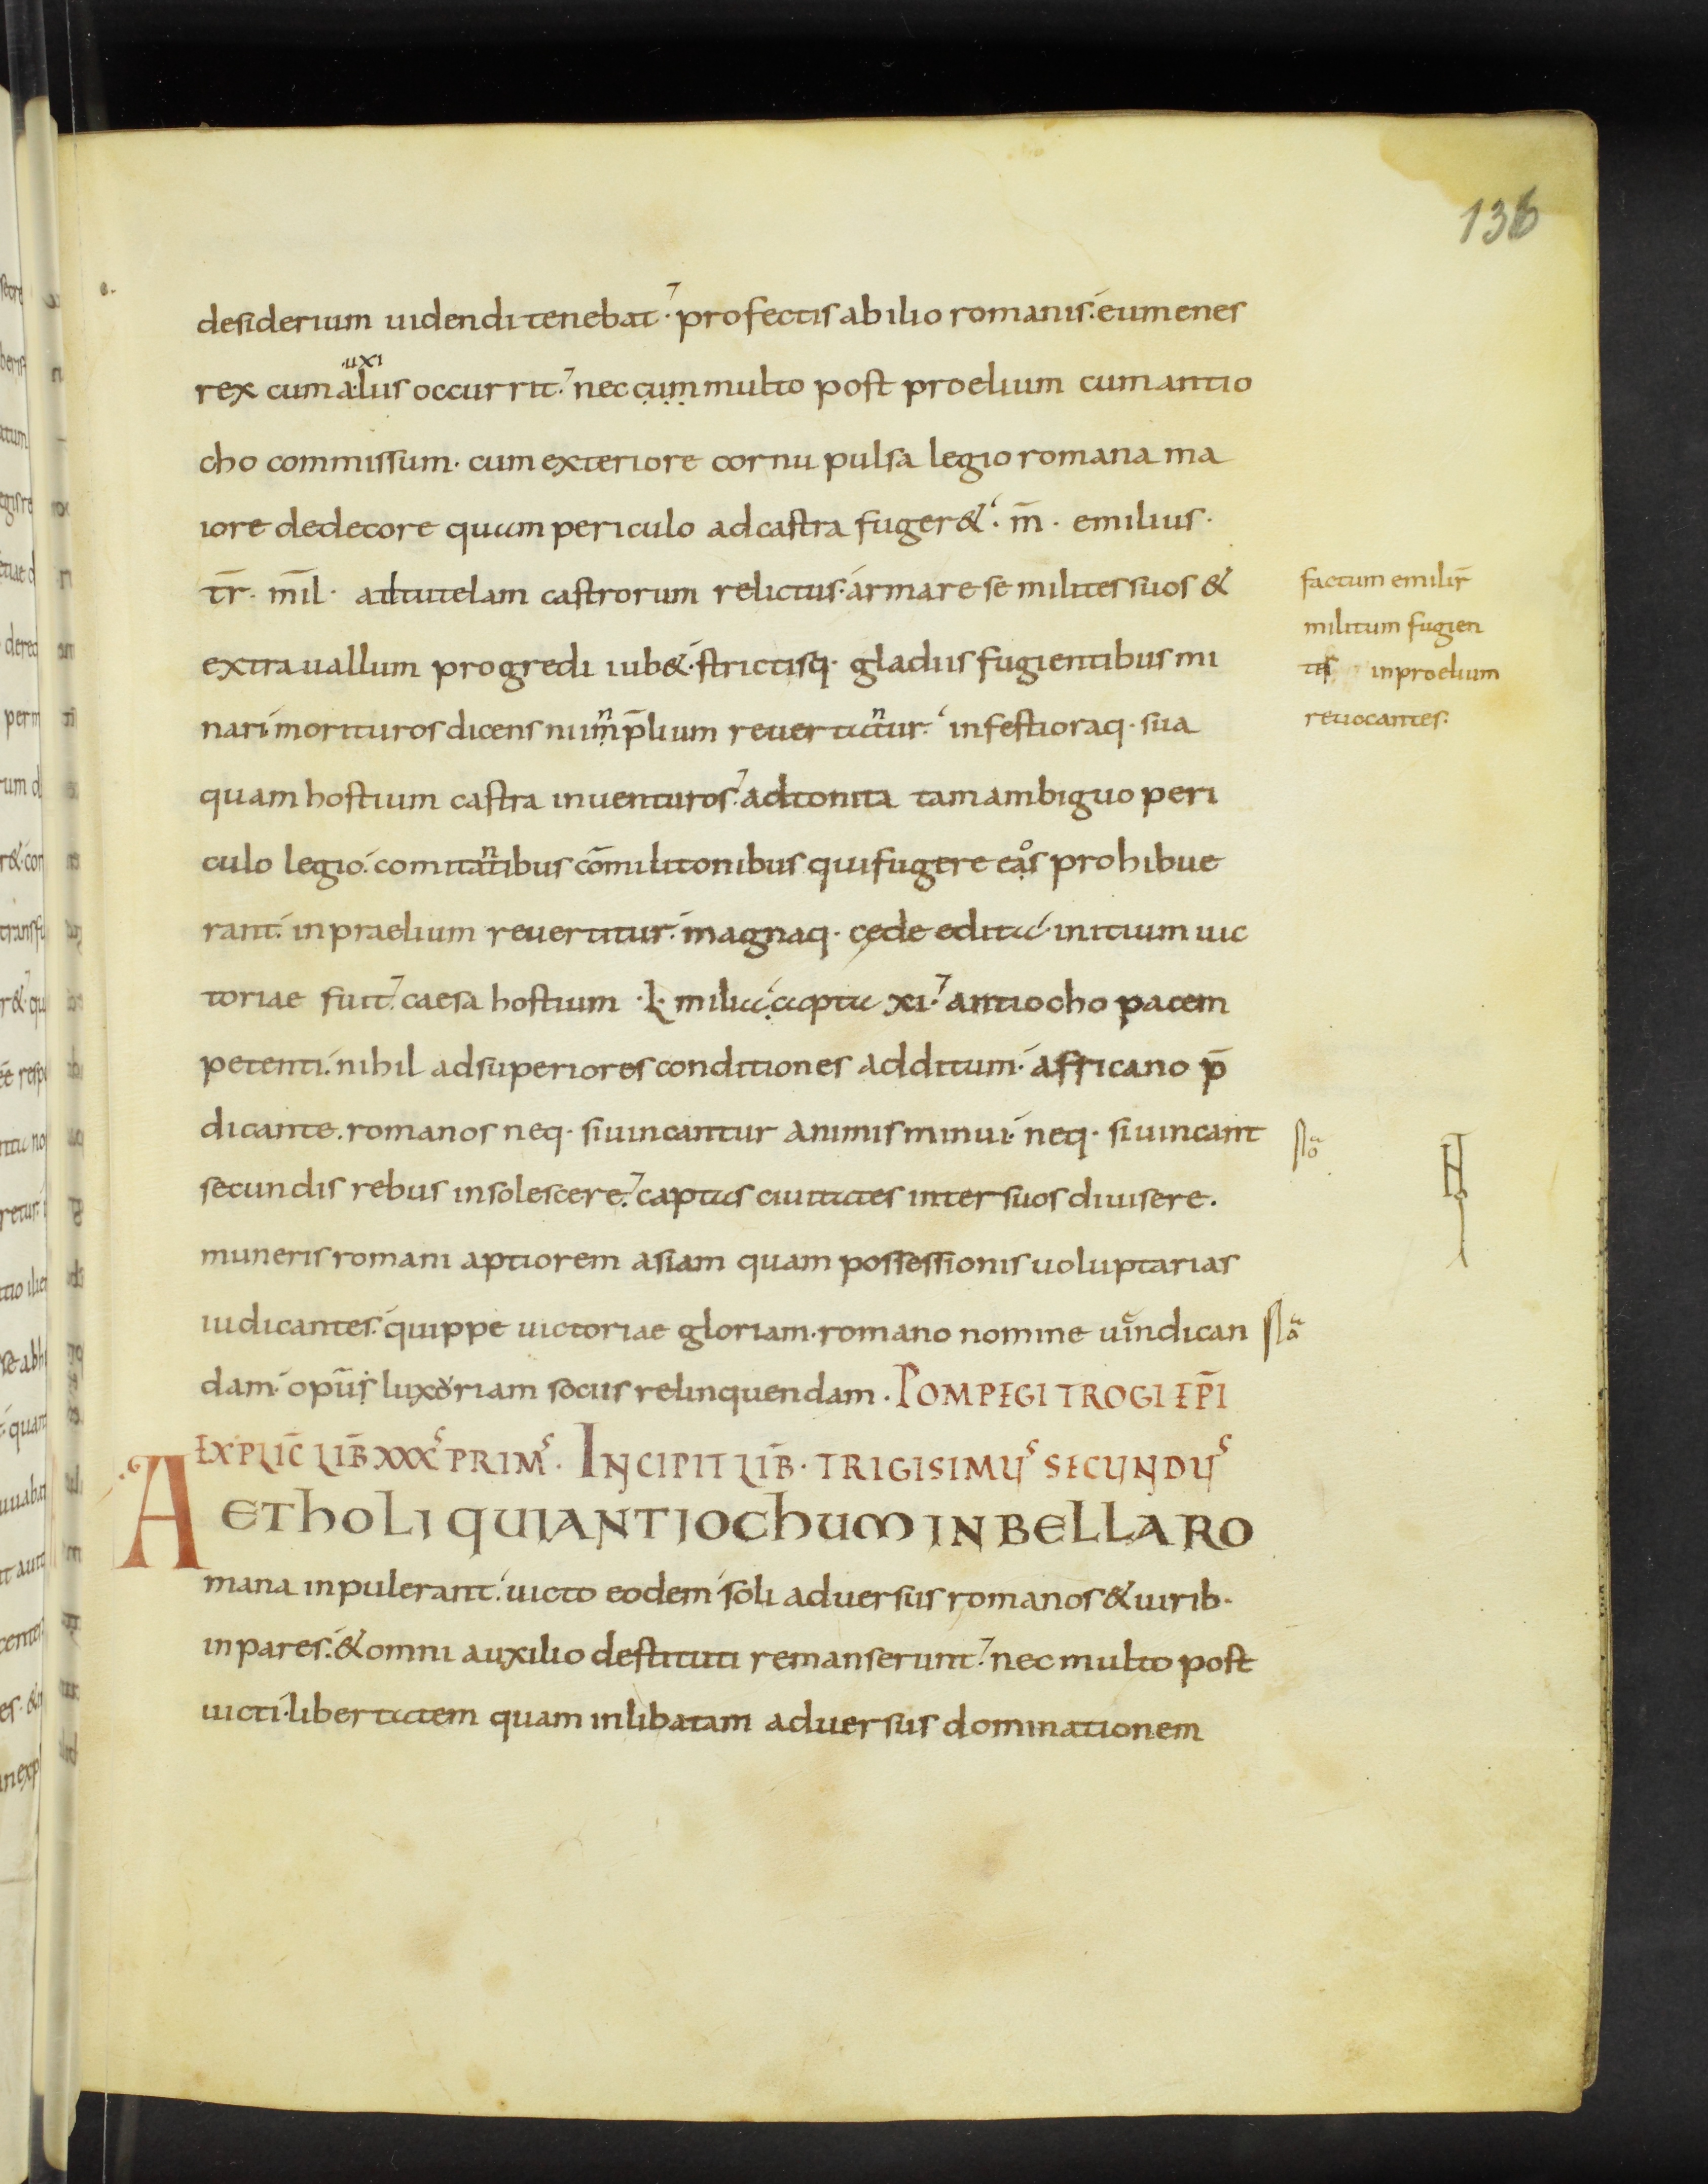 136
desiderium uidendi tenebat· profectis ab ilio romanis· eumenes
rex cum a·uxi·lus occurrit· nec cum multo post proelium cum antio
cho commissum· cum exteriore cornu pulsa legio romana ma
iore dedecore quam periculo ad castra fuger&· m̄· emilius·
tr̄· mīl· ad tutelam castrorum relictus· armare se milites suos &
extra uallum progredi iub&· strictisq· gladiis fugientibus mi
nari morituros dicens niimⁿ p̄lium reuertantur· infestioraq· sua
quam hostium castra inuenturos· adtonita tam ambiguo peri
culo legio· comitantibus cōmilitonibus qui fugere eaos prohibue
rant· in praelium reuertitur· magnaq· cede edita· initium uic
toriae fuit· caesa hostium ·L· milia· capta xi· antiocho pacem
petenti· nihil ad superiores conditiones additum· africano p̄
dicante· romanos neq· si uincantur animis minui· neq· si uincant
secundis rebus insolescere· captas ciuitates inter suos diuisere·
muneris romani aptiorem asiam quam possessionis uoluptarias
iudicantes· quippe uictoriae gloriam· romano nomine uindican
dam· opūs luxoriam sociis relinquendam· POMPEGI TROGI EP̄I
EXPLIC̄ LIB̄ XXXˢ PRIMˢ· INCIPIT LIB̄· TRIGISIMUˢ SECUNDUˢ
AETHOLI QUI ANTIOCHUM IN BELLA RO
mana inpulerant· uicto eodem soli aduersus romanos & uirib·
inpares· & omni auxilio destituti remanserunt· nec multo post
uicti· libertatem quam inlibatam aduersus dominationem
factum emilii
militum fugien
tes in proelium
reuocantes·